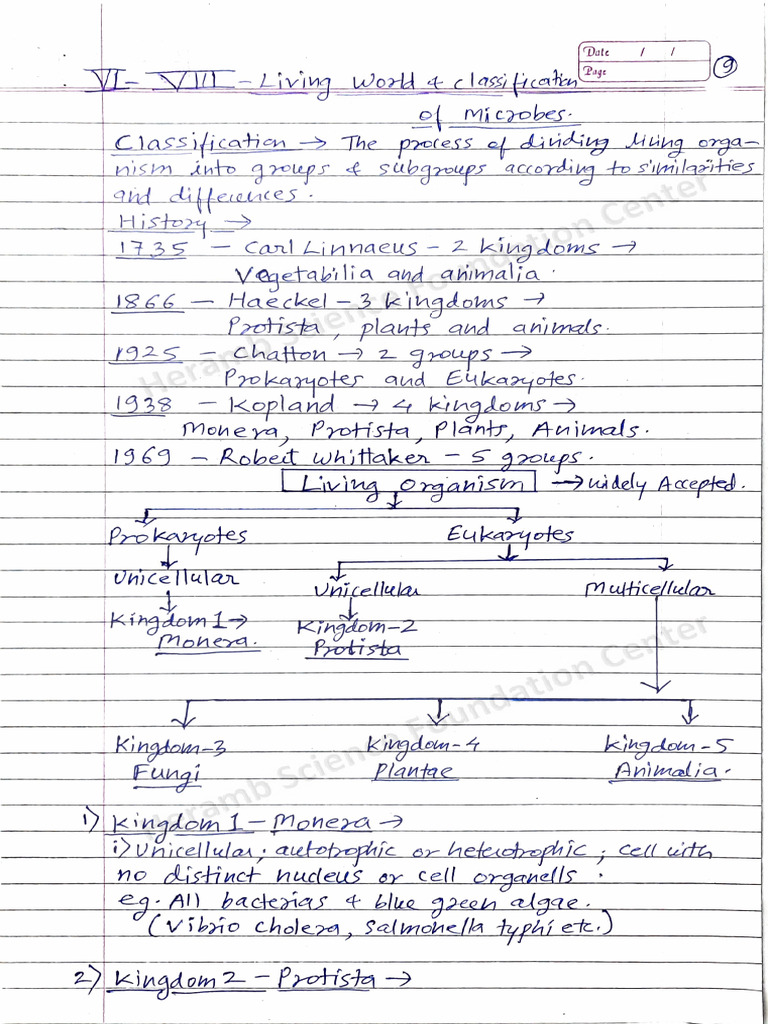 Date / /
Page
9
VI - VIII - Living World & classification
of Microbes.
Classification → The process of dividing living orga-
nism into groups & subgroups according to similarities
and differences.
History →
1735 - Carl Linnaeus - 2 kingdoms →
Vegetabilia and animalia.
1866 - Haeckel - 3 kingdoms →
Protista, plants and animals.
1925 - Chatton → 2 groups →
Prokaryotes and Eukaryotes.
1938 - Kopland → 4 kingdoms →
Monera, Protista, Plants, Animals.
1969 - Robert Whittaker - 5 groups.
Living Organism → widely Accepted.
Prokaryotes Eukaryotes
Unicellular Unicellular Multicellular
Kingdom 1 → Kingdom-2
Monera. Protista
Kingdom-3 Kingdom-4 Kingdom-5
Fungi Plantae Animalia.
1) Kingdom 1 - Monera →
i) Unicellular; autotrophic or heterotrophic; cell with
no distinct nucleus or cell organells.
eg. All bacterias & blue green algae.
(Vibrio cholera, Salmonella typhi etc.)
2) Kingdom 2 - Protista →
Heramb Science Foundation Center
Heramb Science Foundation Center